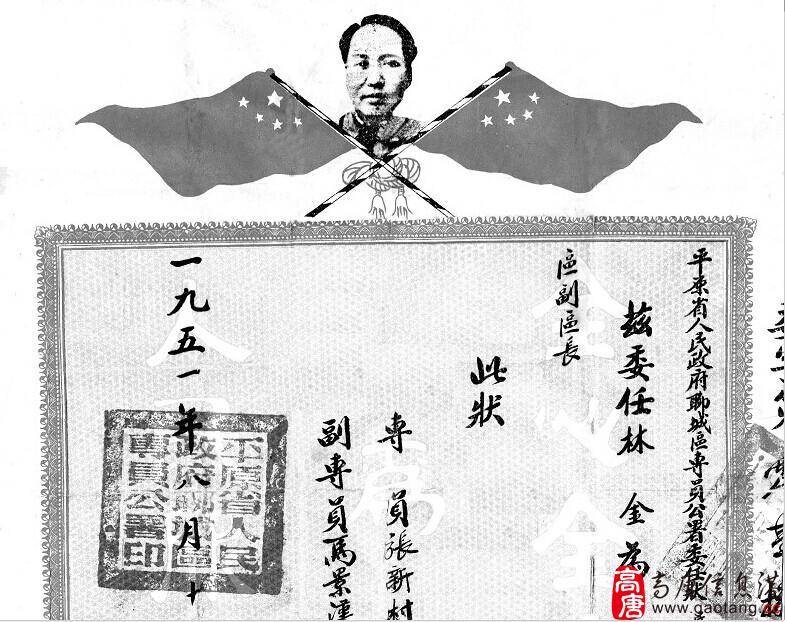 平原省人民政府聊城區專員公署委任狀
茲委任林 金為
區副區長
此狀
專 員張新村
副專員馬景
一九五一年八月十
平原省人民
政府聊城區
專員公署印
全心全
為人
高唐
高唐信息港
www.gaotang.cc